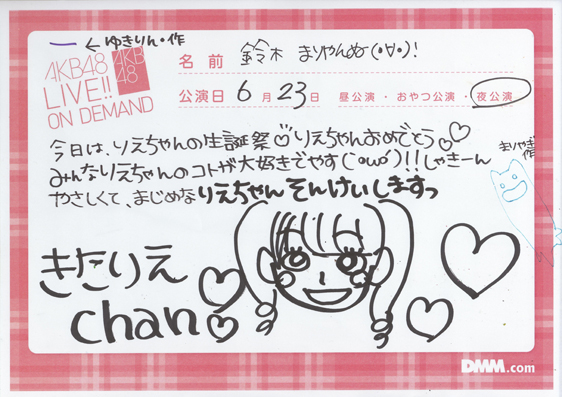 ← ゆきりん・作
AKB48
LIVE!!
ON DEMAND
AKB
48
名前 鈴木 まりやんぬ(・∀・)!
公演日 6月23日 昼公演・おやつ公演・夜公演
今日は、りえちゃんの生誕祭♡りえちゃんおめでとう♡♡
みんなりえちゃんのコトが大好きでやす(´ω`)!!しゃきーん
やさしくて、まじめなりえちゃんそんけいしますっ
まりやぎ
作
きたりえ
chan
DMM.com